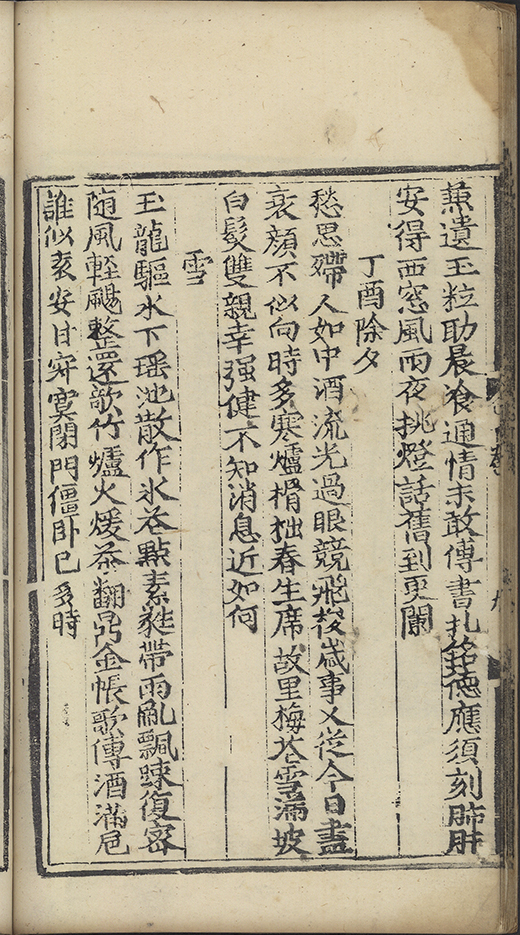 蒹遺玉粒助晨飡通情未敢傳書扎銘德應須刻肺肝
安得西窓風雨夜挑燈話舊到更闌
丁酉除夕
愁思殢人如中酒流光過眼競飛梭歲事又從今日盡
衰顔不似向時多寒爐榾拙春生席故里梅花雪滿坡
白髮雙親幸强健不知消息近如何
雪
玉龍驅水下瑶池散作氷花點素蕤帶雨亂飄踈復密
随風輕颺整還欹竹爐火煖茶翻鼎金帳歌傳酒滿巵
誰似袁安甘寂寞閉門僵卧已多時